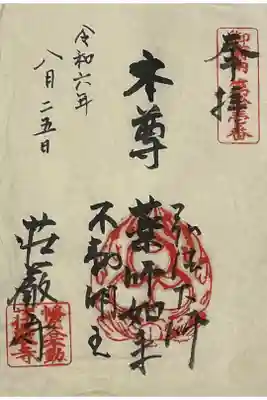 奉拝
本尊
弘法大師
薬師如来
不動明王
荘厳寺
令和六年
八月二五日